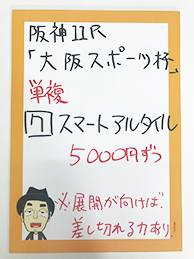 阪神11R
「大阪スポーツ杯」
単複
7 スマートアルタイル
5000円ずつ
※展開が向けば、
差し切れる力あり!